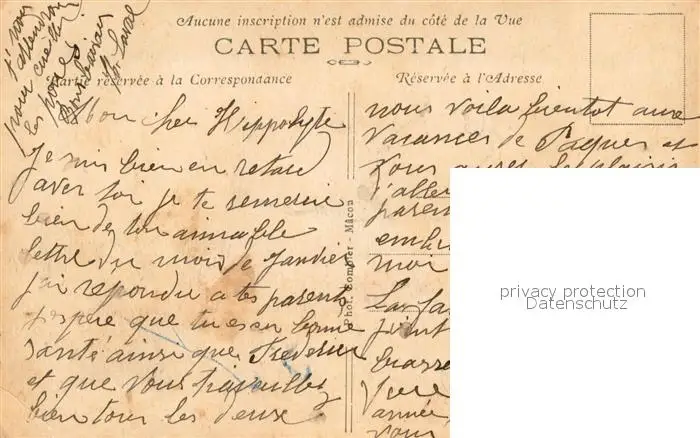 Aucune inscription n'est admise du côté de la Vue
CARTE POSTALE
Partie réservée à la Correspondance
Réservée à l'Adresse
t'nous
attendrons
pour cueillir
les poires
Mon cher Hippolyte
Je suis bien en retard
avec toi je te remercie
bien de ton aimable
lettre du mois de Janvier
j'ai repondu a tes parents
j'espere que tu es en bonne
santé ainsi que Frederic
et que vous travaillez
bien tous les deux.
nous voila bientot aux
vacances de Paques et
vous aurez le plaisir
d'aller
paren
emb
moi
Phot. Combier - Mâcon
année
vous
privacy protection
Datenschutz